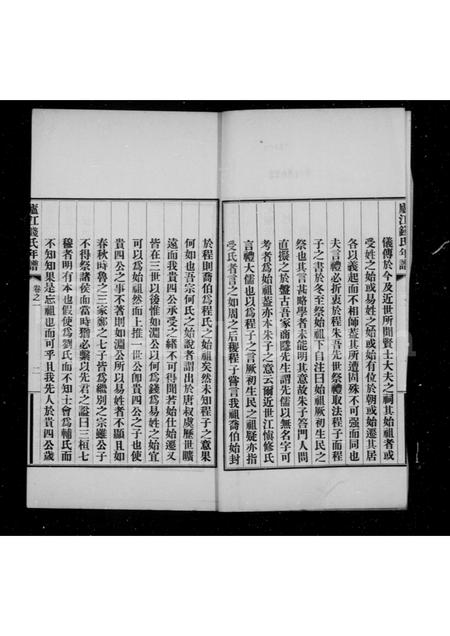 廬江錢氏年譜
儀傳於今及近世所聞賢士大夫之祠其始祖者或
受姓之始或易姓之始或始有位於朝或始遷其居
各以義起而不相師蓋其所遭固殊不可强而同也
夫言禮必折衷於程朱吾先世祭禮取法程子而程
子之書於冬至祭始祖下自注曰始祖厥初生民之
祭也其言甚略學者未能明其意故朱子答門人問
直擬之於盤古吾家商隱先生謂先儒以無名字可
考者爲始祖蓋亦本朱子之意云爾近世江愼修氏
言禮大儒也以爲程子之言厥初生民之祖疑亦指
受氏者言之如周之后稷程子嘗言我祖喬伯始封
於程則喬伯爲程氏之始祖矣然未知程子之意果
何如也吾宗何氏之始說者謂出於唐叔虞歷世曠
遠而我貴四公承受之緒不可得聞若始仕始遷又
皆在三世以後惟如淵公以何爲錢爲易姓之始宜
可以爲始祖然而上推一世公卽貴四公之子也使
貴四公之事不著則如淵公所以易姓者不顯且如
春秋時魯之三家鄭之七子皆爲繼別之宗雖公子
不得祭諸侯而當時猶必繫以先君之謚曰三桓七
穆者明有本也假使爲劉氏而不知士會爲輔氏而
不知知果是忘祖也而可乎且我先人於貴四公歲
廬江錢氏年譜
卷之一
二